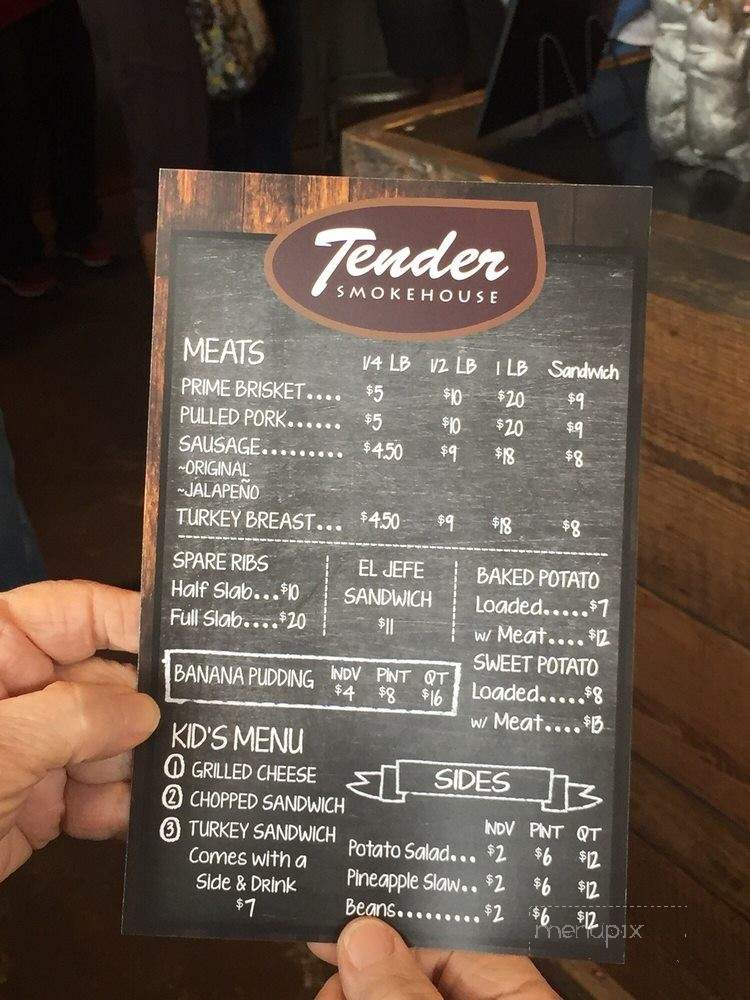 Tender
SMOKEHOUSE
MEATS 1/4 LB 1/2 LB 1 LB Sandwich
PRIME BRISKET.... $5 $10 $20 $9
PULLED PORK...... $5 $10 $20 $9
SAUSAGE......... $4.50 $9 $18 $8
~ORIGINAL
~JALAPEÑO
TURKEY BREAST... $4.50 $9 $18 $8
SPARE RIBS
Half Slab...$10
Full Slab....$20
EL JEFE
SANDWICH
$11
BAKED POTATO
Loaded.....$7
w/ Meat....$12
SWEET POTATO
Loaded.....$8
w/ Meat....$13
BANANA PUDDING INDV PINT QT
$4 $8 $16
KID'S MENU
1 GRILLED CHEESE
2 CHOPPED SANDWICH
3 TURKEY SANDWICH
Comes with a
Side & Drink
$7
SIDES
INDV PINT QT
Potato Salad... $2 $6 $12
Pineapple Slaw.. $2 $6 $12
Beans.......... $2 $6 $12
menupix